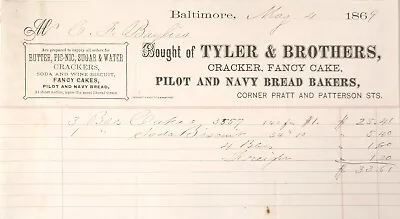 Baltimore, May 4 1869
Mr C. F.
Are prepared to supply all orders for
BUTTER, PIC-NIC, SUGAR & WATER
CRACKERS,
SODA AND WINE BISCUIT,
FANCY CAKES,
PILOT AND NAVY BREAD,
At short notice, upon the most liberal terms
Bought of TYLER & BROTHERS,
CRACKER, FANCY CAKE,
PILOT AND NAVY BREAD BAKERS,
CORNER PRATT AND PATTERSON STS.
3 $ 25.41
1 " Soda Biscuit " 5.40
4 Bbls " 1.60
" 1.20
$ 33.61